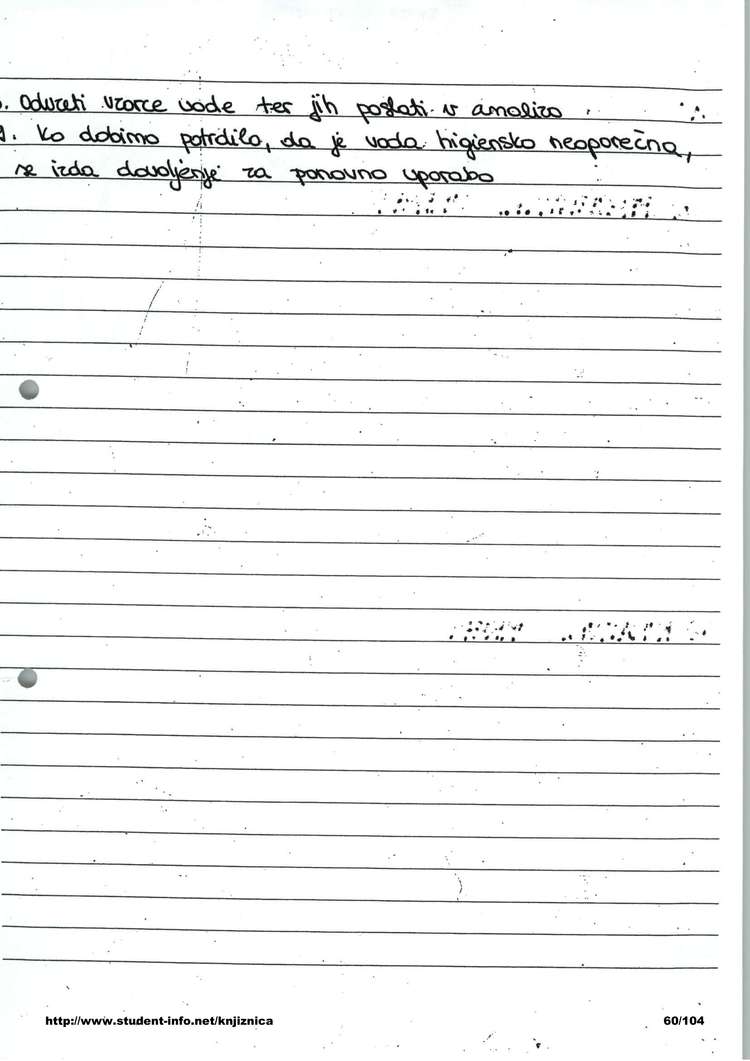 . Odvzeti vzorce vode ter jih poslati v analizo
9. Ko dobimo potrdilo, da je voda higiensko neoporečna,
se izda dovoljenje za ponovno uporabo
http://www.student-info.net/knjiznica 60/104